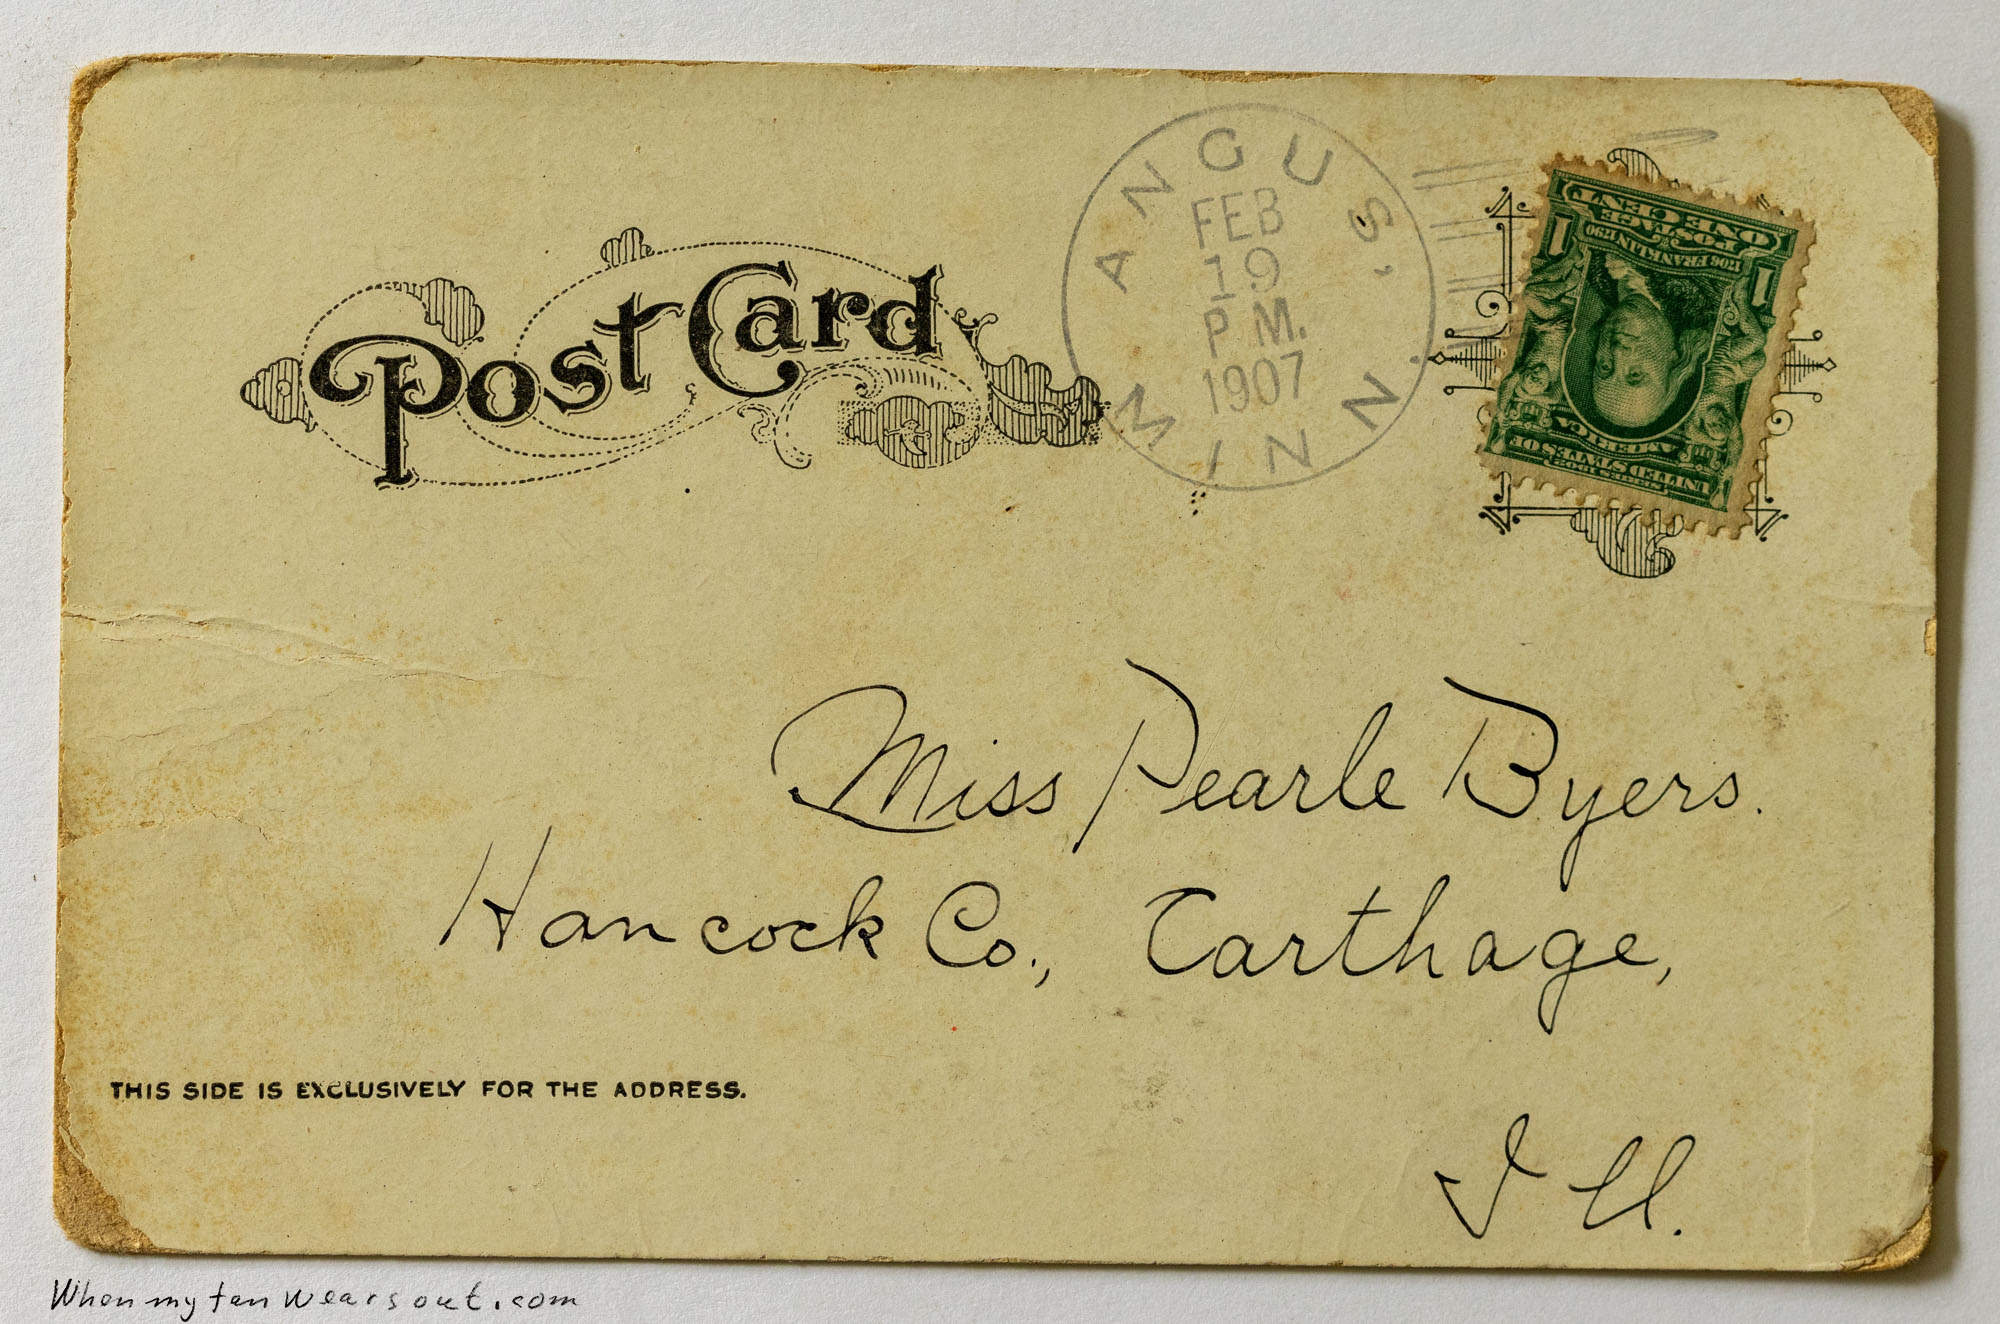 Post Card
ANGUS,
FEB
19
P M.
1907
MINN.
ONE CENT
POSTAGE
1706 FRANKLIN 1790
1 1
AMERICA
UNITED STATES OF
SERIES 1902
Miss Pearle Byers.
Hancock Co., Carthage,
Ill.
THIS SIDE IS EXCLUSIVELY FOR THE ADDRESS.
When my tan wears out.com